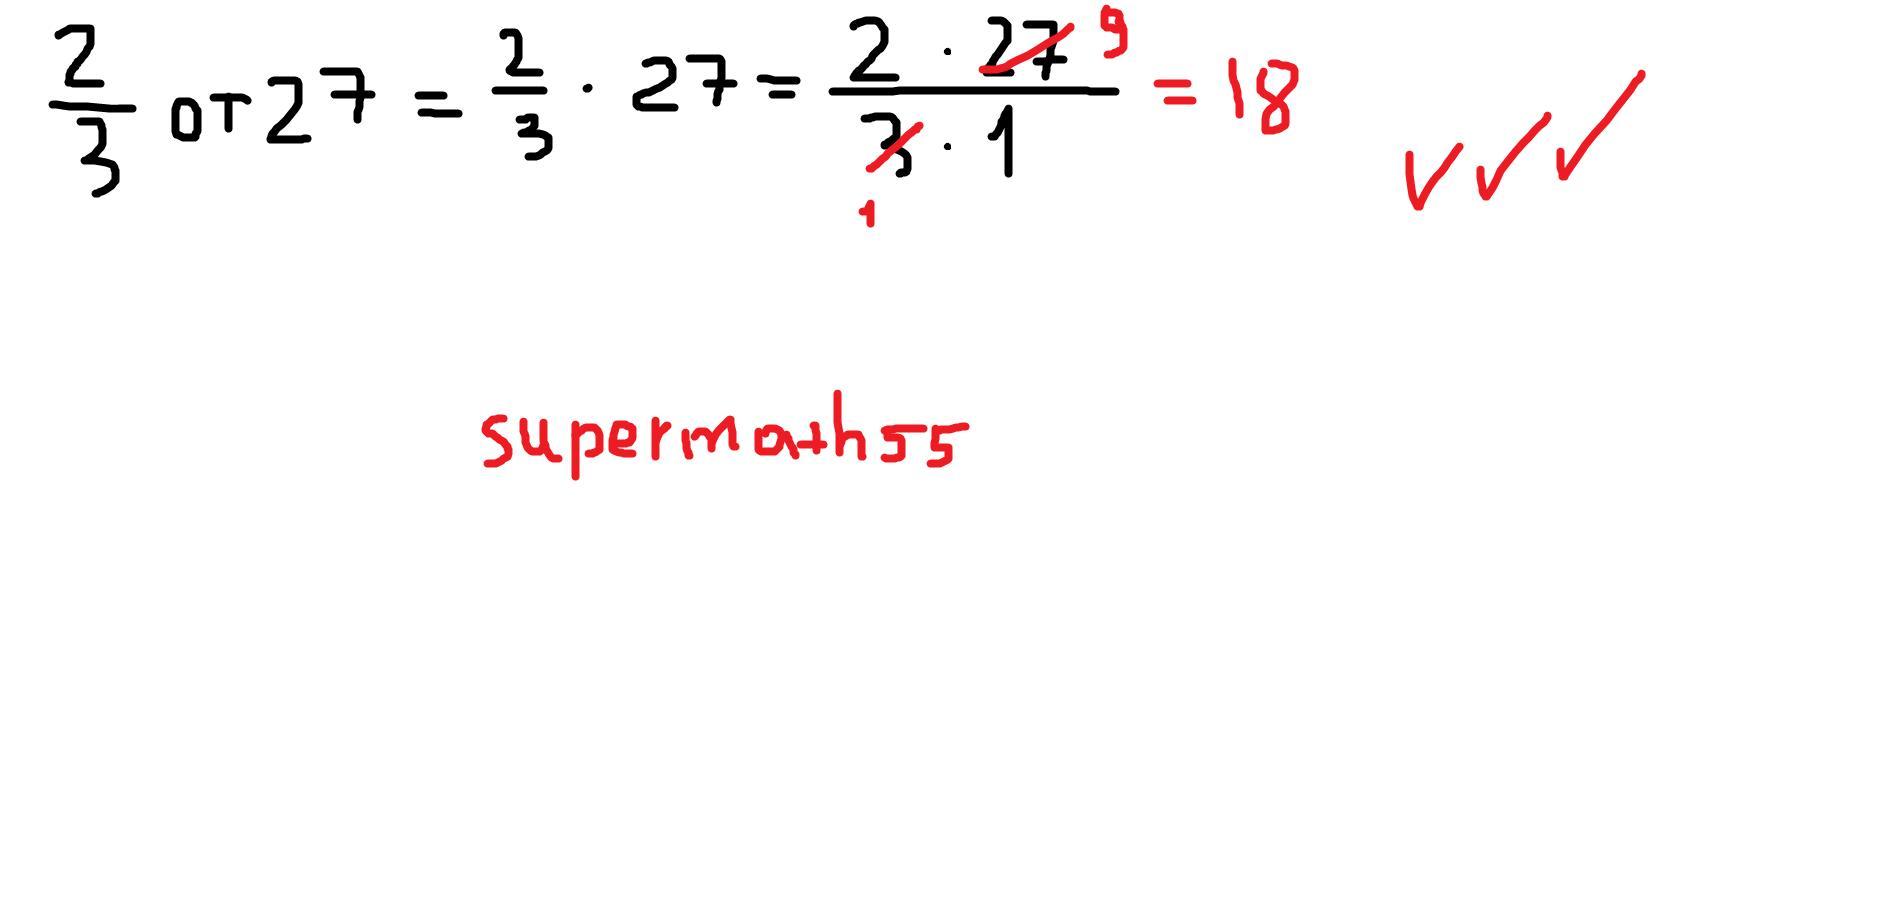 2/3 от 27 = 2/3 · 27 = (2 · 27 9)/(3 · 1) = 18
1
supermath55